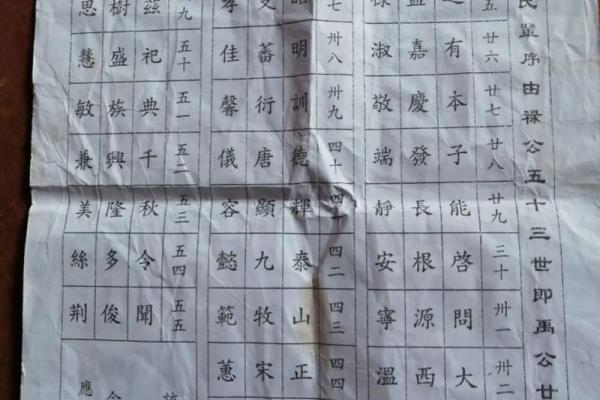 民輩序由祿公五十三世即禹公廿
五 廿六 廿七 廿八 廿九 三十 卅一 卅二
有本子能啓問大
嘉慶發長根源西
淑敬端靜安寧溫
七 卅八 卅九 四十 四一 四二 四三 四四
明訓德輝泰山正
文蕃衍唐顯九牧宋
孝佳馨儀容懿範蕙
九 五十 五一 五二 五三 五四 五五
茲祀典千秋令聞
樹盛族興隆多俊
思慧敏兼美絲荊
應